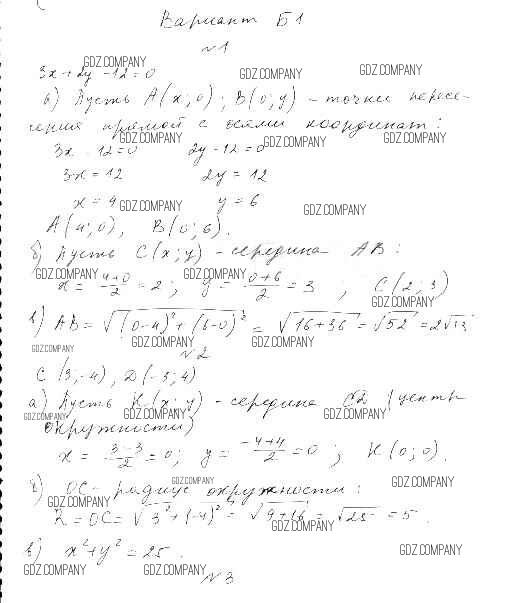 Вариант Б1
№1
GDZ.COMPANY
3x+2y-12=0 GDZ.COMPANY GDZ.COMPANY
а) Пусть A(x;0), B(0;y) - точки пересе-
чения прямой с осями координат:
GDZ.COMPANY GDZ.COMPANY GDZ.COMPANY
3x-12=0 2y-12=0
3x=12 2y=12
x=4 GDZ.COMPANY y=6 GDZ.COMPANY
A(4;0), B(0;6).
б) Пусть C(x;y) - середина AB:
GDZ.COMPANY GDZ.COMPANY
x=\frac{4+0}{2}=2; y=\frac{0+6}{2}=3; C(2;3)
GDZ.COMPANY
в) AB=√((0-4)²+(6-0)²)=√(16+36)=√52=2√13
GDZ.COMPANY GDZ.COMPANY GDZ.COMPANY
№2
C(3;-4), D(-3;4)
а) Пусть K(x;y) - середина CD (центр
GDZ.COMPANY GDZ.COMPANY GDZ.COMPANY
окружности)
x=\frac{3-3}{2}=0; y=\frac{-4+4}{2}=0; K(0;0).
GDZ.COMPANY GDZ.COMPANY
б) OC - радиус окружности:
GDZ.COMPANY
R=OC=√(3²+(-4)²)=√(9+16)=√25=5.
GDZ.COMPANY
в) x²+y²=25.
GDZ.COMPANY
GDZ.COMPANY GDZ.COMPANY
№3